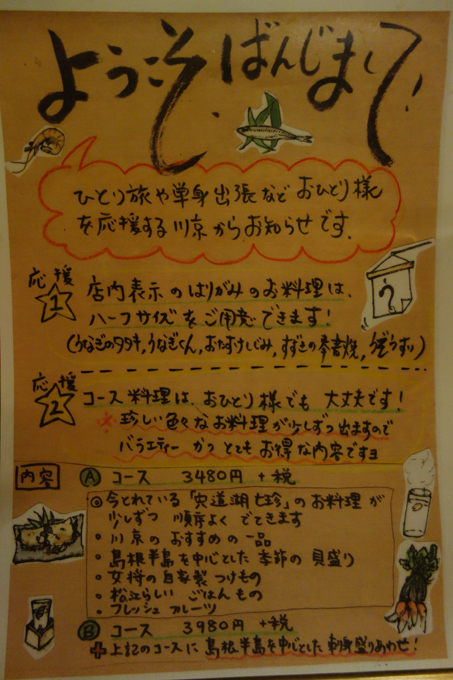 ようこそ、ばんじまして！
ひとり旅や単身出張など おひとり様
を応援する川京からお知らせです。
応援
1
店内表示のはりがみのお料理は、
ハーフサイズをご用意できます！
(うなぎのタタキ,うなぎくん,おたすけしじみ,すずきの奉書焼,
う
応援
2
コース料理は、おひとり様でも 大丈夫です！
※珍しい色々なお料理が少しずつ出ますので
バラエティーかつとてもお得な内容ですヨ
内容
Ⓐ コース 3480円 +税
◎今とれている「宍道湖七珍」のお料理が
少しずつ 順序よく でてきます
・川京のおすすめの一品
・島根半島を中心とした 季節の 貝盛り
・女将の自家製つけもの
・松江らしい ごはんもの
・フレッシュ フルーツ
Ⓑ コース 3980円 +税
+上記のコースに 島根半島を中心とした 刺身盛りあわせ！